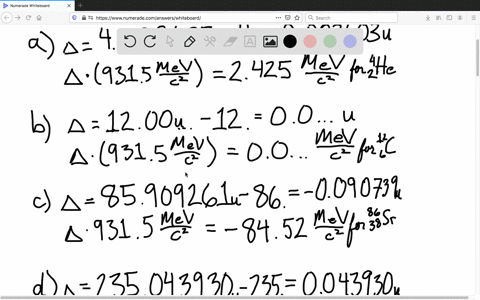 https://www.numerade.com/answers/whiteboard/
Search
a) Δ = 4.
603u
Δ·(931.5 MeV/c²) = 2.425 MeV/c² for ⁴₂He
b) Δ = 12.00u. -12. = 0.0... u
Δ·(931.5 MeV/c²) = 0.0... MeV/c² for ¹²₆C
c) Δ = 85.909261u-86. = -0.090739u
Δ·931.5 MeV/c² = -84.52 MeV/c² for ⁸⁶₃₈Sr
d) Δ = 235.043930.-235. = 0.043930u